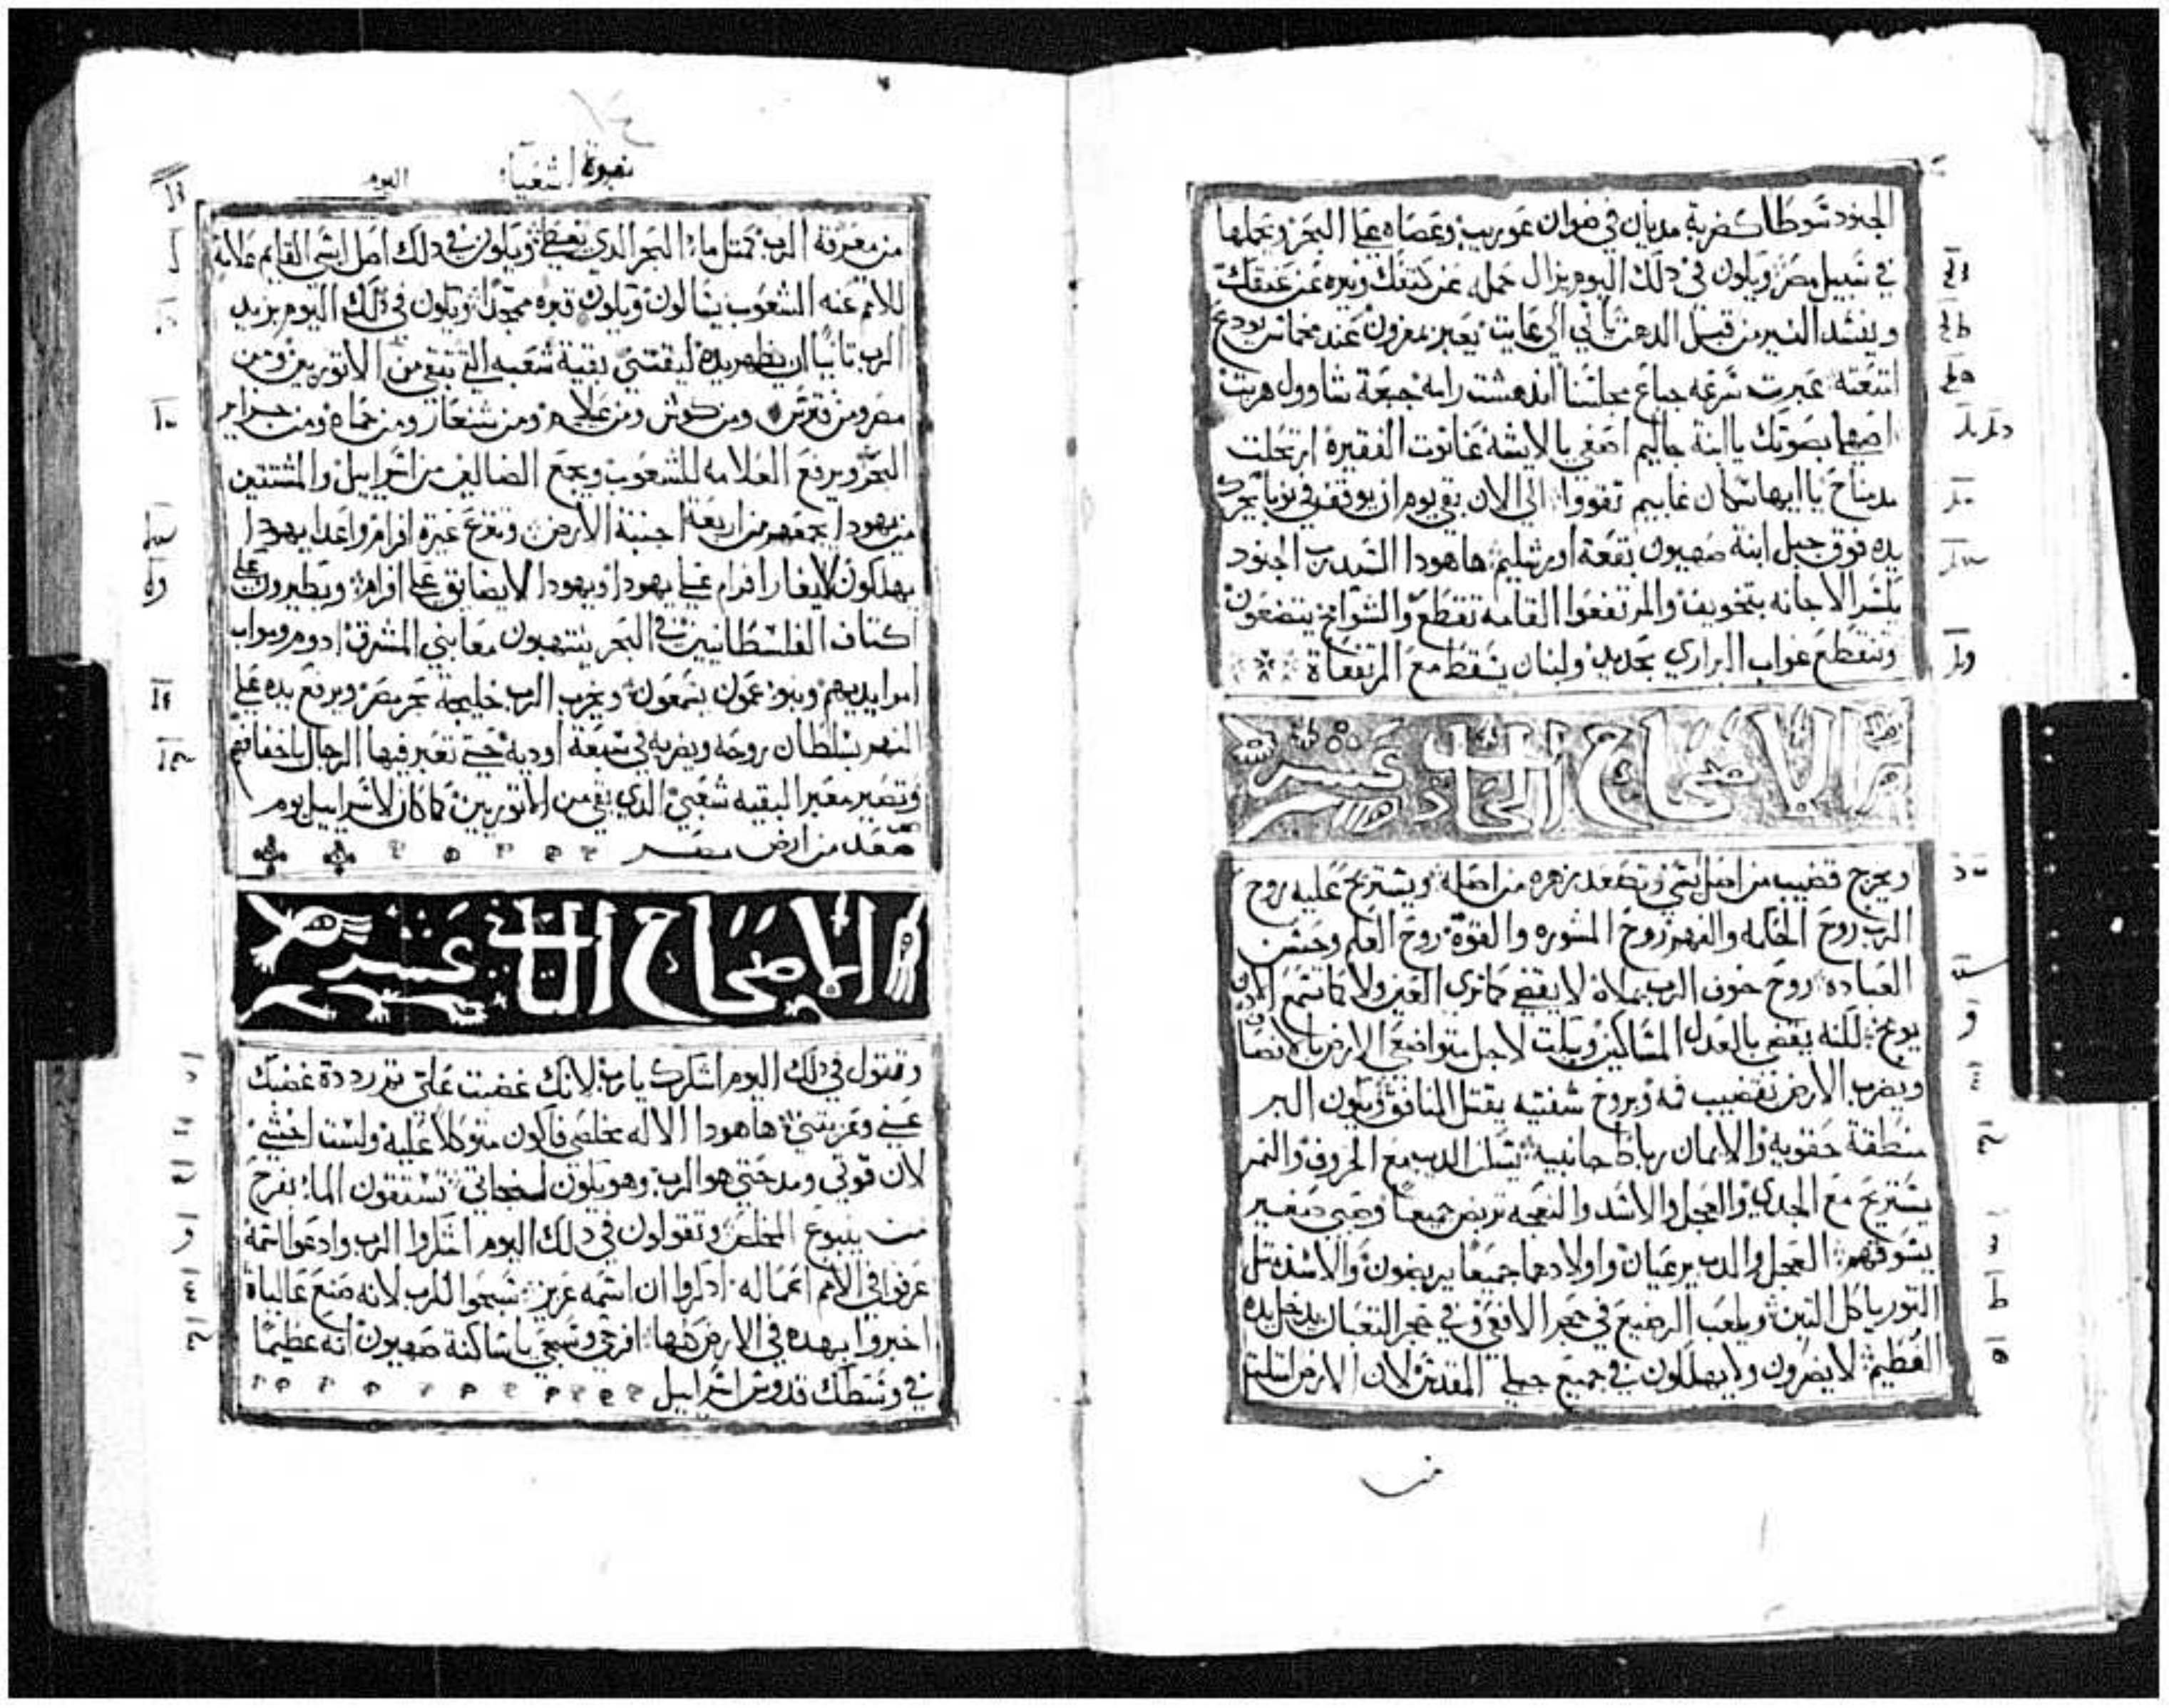 الجنود شوطا كضربة مديان في صوان عوريب وعصاه على البحر ويحملها
في سبيل مصر ويكون في ذلك اليوم يزال حمله عن كتفك ونيره عن عنقك
ويفسد النير من قبل الدهن ياتي الى عايت يعبر بمغرون عند مخماس يودع
امتعته عبرت سرعه جباع مجلسنا اندهشت رامه جبعة شاوول هربت
اصهلي بصوتك يا ابنة جاليم اصغي يا لايشه عناتوت الفقيره ارتحلت
مدمناح يا ايها سكان غابيم تقووا الى الان بقي يوم ان يوقف في نوبا يحرك
يده فوق جبل ابنة صهيون بقعة اورشليم هاهودا السيد رب الجنود
يكسر الاجانه بتخويف والمرتفعوا القامه تقطع والشوامخ يتضعون
وتنقطع غواب البراري بحديد ولبنان يسقط مع المرتفعاة
الاصحاح الحادي عشر
ويخرج قضيب من اصل يشي وتصعد زهره من اصله ويستريح عليه روح
الرب روح الحكمه والفهم روح المشوره والقوة روح العلم وحسن
العباده روح خوف الرب يملاه لا يقضي كما ترى العين ولا كما تسمع الادن
يوبخ لكنه يقضي بالعدل المساكين ويبكت لاجل متواضعي الارض بالانصاف
ويضرب الارض بقضيب فه وبروح شفتيه يقتل المنافق ويكون البر
منطقة حقويه والايمان رباط جانبيه يسكن الديب مع الخروف والنمر
يستريح مع الجدي والعجل والاسد والنعجه تربض جميعا وصبي صغير
يسوقهم العجل والدب يرعيان واولادهما جميعا يربضون والاسد متل
التور ياكل التبن ويلعب الرضيع في حجر الافعى وفي حجر التعبان يدخل يده
الفطيم لا يضرون ولا يهلكون في جميع جبلي المقدس لان الارض امتلت
من
نبوة اشعيا
اليوم
من معرفة الرب كمتل ماء البحر الدي يغطي ويكون في دلك اصل يشي القايم علامة
للامم عنه الشعوب يسالون ويكون قبره ممجدا ويكون في دلك اليوم يزيد
الرب تانيا ان يظهر يده ليقتني بقية شعبه التي تبقى من الاتوريين ومن
مصر ومن فترس ومن كوش ومن علام ومن شنعار ومن حماه ومن جزاير
البحر ويرفع العلامه للشعوب ويجمع الضالين من اسراييل والمشتتين
من يهودا يجمعهم من اربعة اجنبة الارض وتنزع غيرة افرام واعدا يهودا
يهلكون لا يغار افرام على يهودا ويهودا لا يضايق على افرام ويطيرون على
اكتاف الفلسطانيين في البحر ينتهبون معا بني المشرق ادوم ومواب
امر ايديهم وبنو عمون يسمعون ويخرب الرب خليجة بحر مصر ويرفع يده على
النهر بسلطان روحه ويضربه في سبعة اوديه حتى تعبر فيها الرجال باخفافهم
وتصير معبر البقيه شعبي الدي بقي من الاتوريين كما كان لاسراييل يوم
صعد من ارض مصر
الاصحاح التاني عشر
وتقول في دلك اليوم اشكرك يارب لانك غضبت علي تم رددة غضبك
عني وعزيتني هاهودا الاله مخلصي فاكون متوكلا عليه ولست اخشي
لان قوتي ومدحتي هو الرب وهو يكون لخجاتي تستقون الماء بفرح
من ينبوع المخلص وتقولون في دلك اليوم اشكروا الرب وادعوا اسمه
عرفوا في الامم اعماله ادكروا ان اسمه عزيز سبحوا للرب لانه صنع عالياة
اخبروا بهده في الارض كلها افرحي وسبحي يا ساكنة صهيون انه عظيما
في وسطك قدوس اسراييل